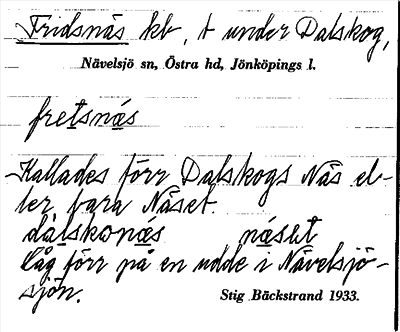 Fridsnäs kt, t under Dalskog,
Nävelsjö sn, Östra hd, Jönköpings l.
fretsnäs
Kallades förr Dalskogs Näs el-
ler bara Näset.
dalskonäs näset
Låg förr på en udde i Nävelsjö-
sjön.
Stig Bäckstrand 1933.